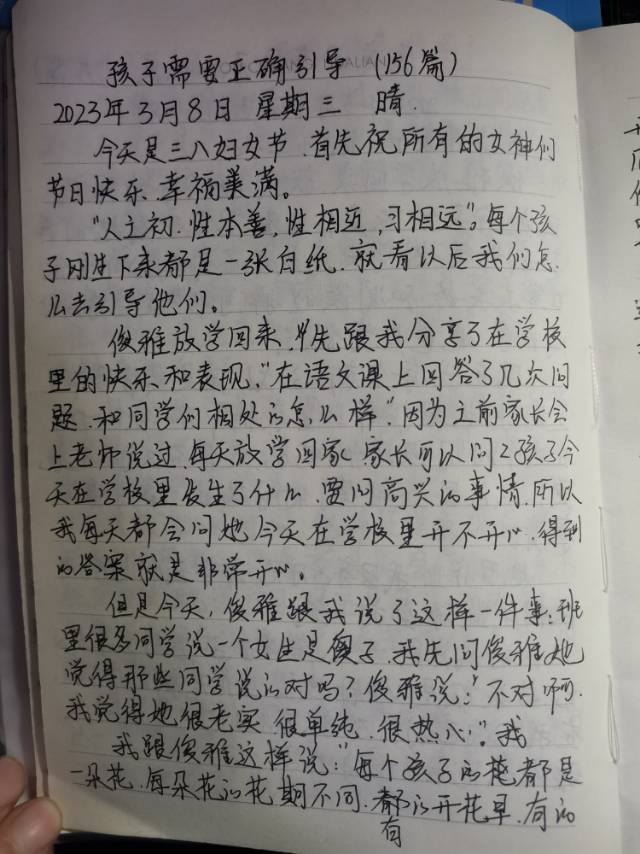 孩子需要正确引导（156篇）
2023年3月8日 星期三 晴.
今天是三八妇女节.首先祝所有的女神们
节日快乐.幸福美满。
"人之初.性本善,性相近,习相远"。每个孩
子刚生下来都是一张白纸.就看以后我们怎
么去引导他们。
俊雅放学回来.先跟我分享了在学校
里的快乐和表现,"在语文课上回答了几次问
题.和同学们相处的怎么样".因为之前家长会
上老师说过.每天放学回家.家长可以问问孩子今
天在学校里发生了什么.要问高兴的事情.所以
我每天都会问她今天在学校里开不开心.得到
的答案就是非常开心。
但是今天,俊雅跟我说了这样一件事:班
里很多同学说一个女生是傻子.我先问俊雅她
觉得那些同学说的对吗?俊雅说:"不对啊.
我觉得她很老实.很单纯.很热心"。我
我跟俊雅这样说:"每个孩子的花都是
一朵花.每朵花的花期不同.都的开花早.有的
有